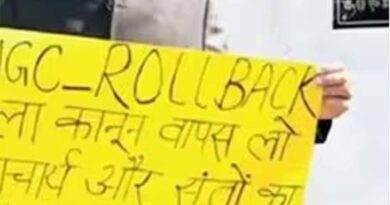 GC_ROLLBACK
ला कानून वापस लो
चार्य और संतों का